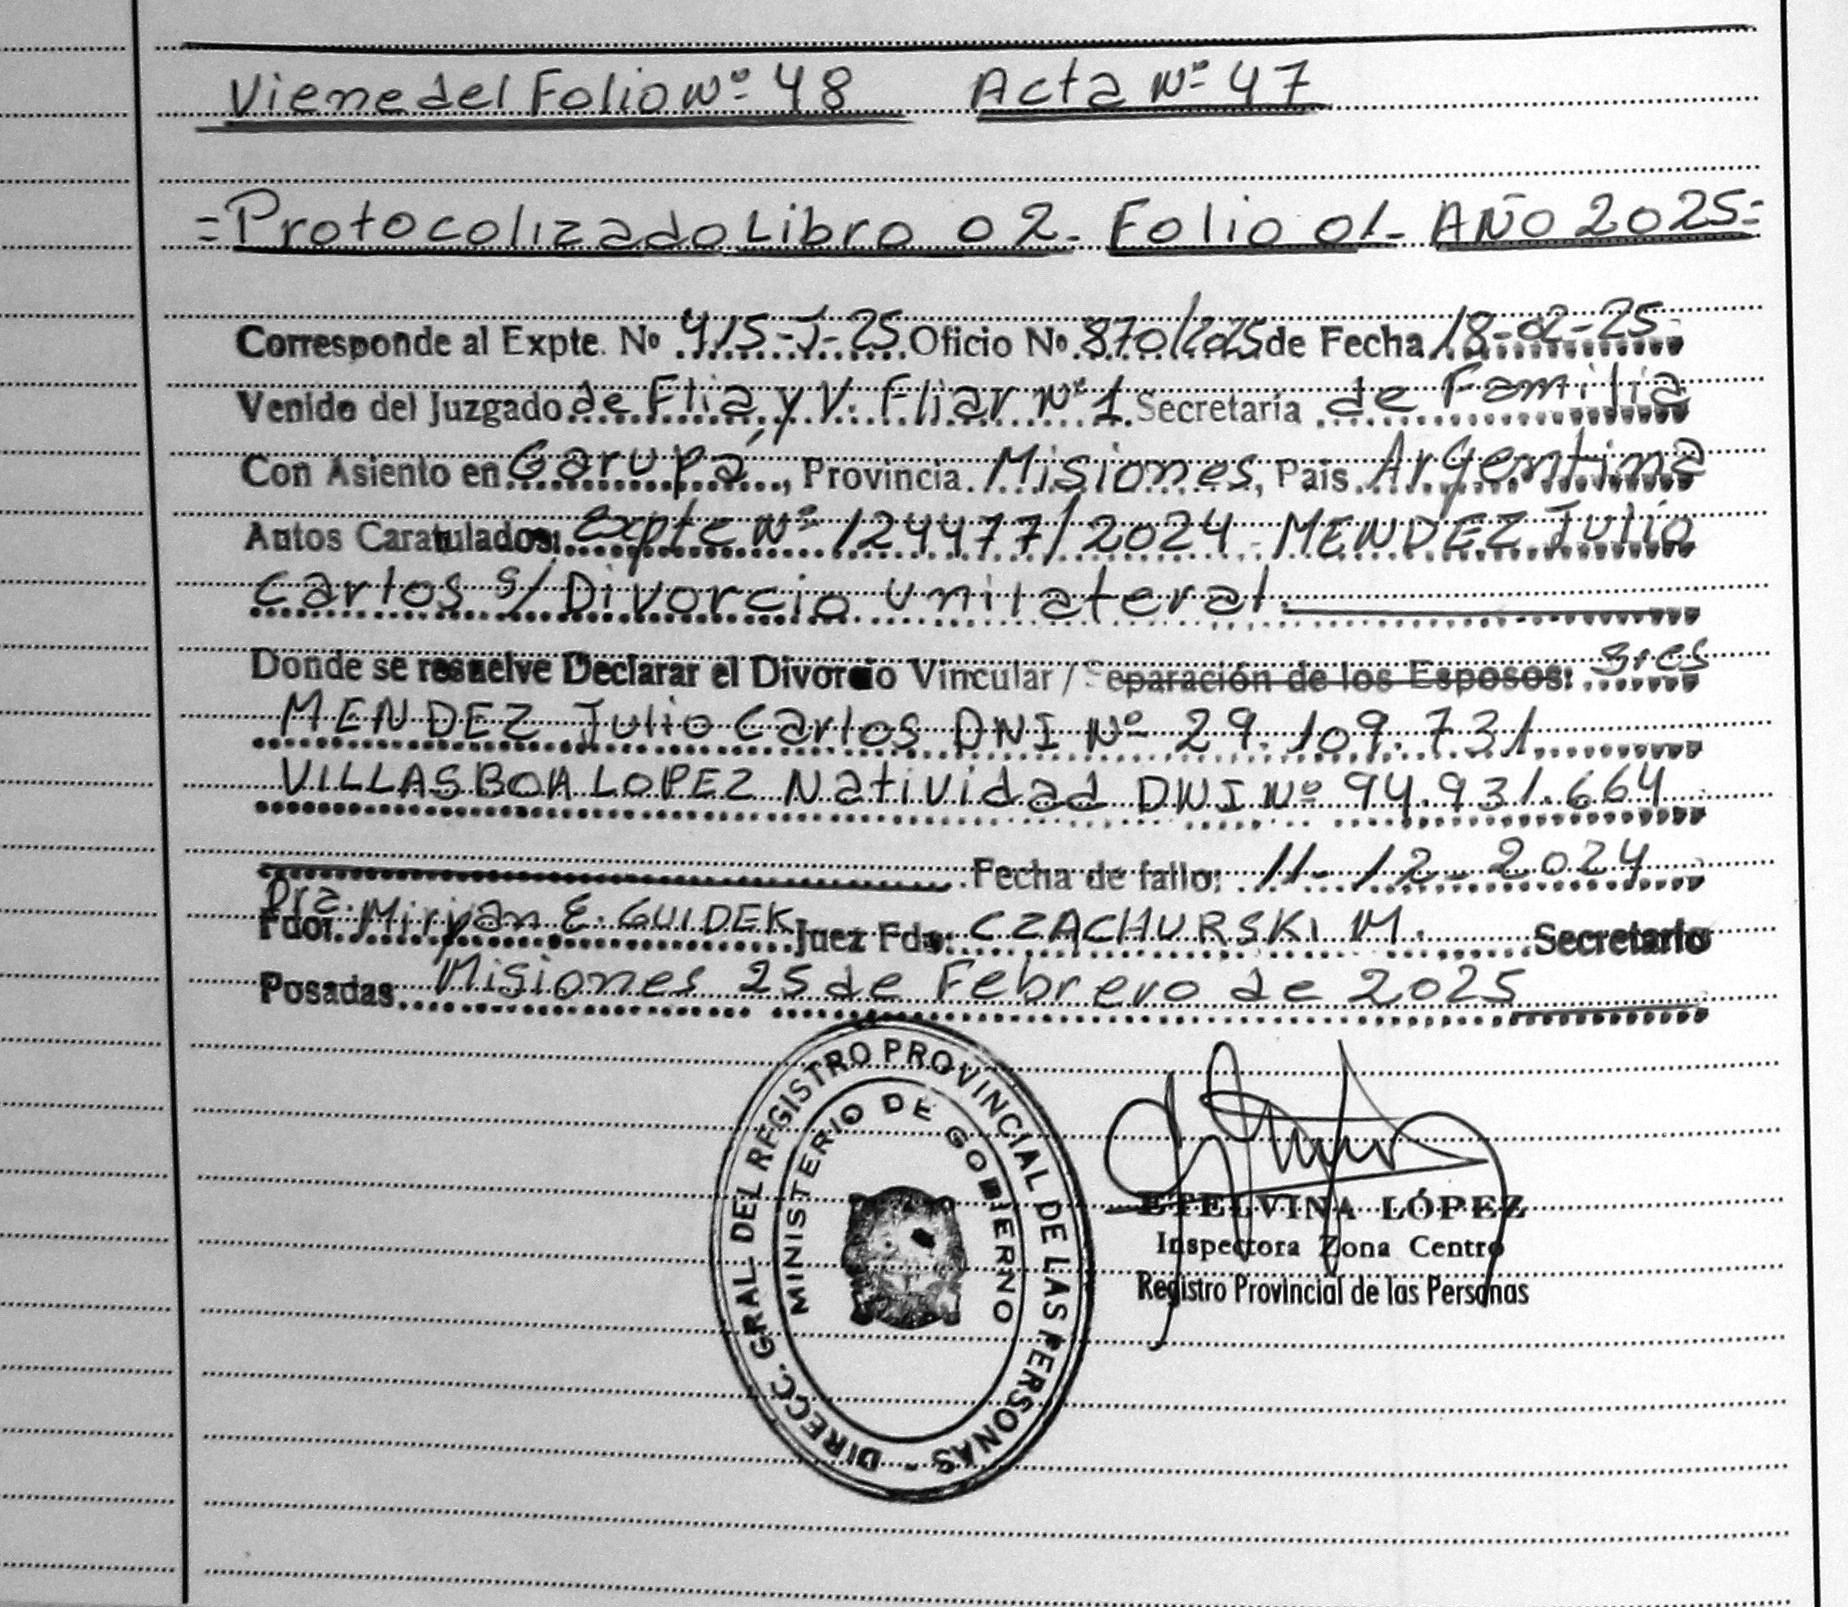 Viene del Folio Nº 48 Acta Nº 47
=Protocolizado Libro 02- Folio 01- AÑO 2025=
Corresponde al Expte. Nº 415-J-25 Oficio Nº 870/2025 de Fecha 18-02-25-
Venido del Juzgado de Flia y V. Fliar Nº 1 Secretaría de Familia
Con Asiento en Garupá, Provincia Misiones, País Argentina
Autos Caratulados: Expte Nº 124477/2024 - MENDEZ Julio
Carlos s/ Divorcio unilateral.
Donde se resuelve Declarar el Divorcio Vincular / Separación de los Esposos: Sres
MENDEZ Julio Carlos DNI Nº 29.109.731
VILLASBOA LOPEZ Natividad DNI Nº 94.931.664
Fecha de fallo: 11-12-2024
Dra.
Fdo: Miryan E. GUIDEK Juez Fdo: CZACHURSKI M. Secretario
Posadas Misiones 25 de Febrero de 2025
DIRECC. GRAL. DEL REGISTRO PROVINCIAL DE LAS PERSONAS -
MINISTERIO DE GOBIERNO
ETELVINA LÓPEZ
Inspectora Zona Centro
Registro Provincial de las Personas